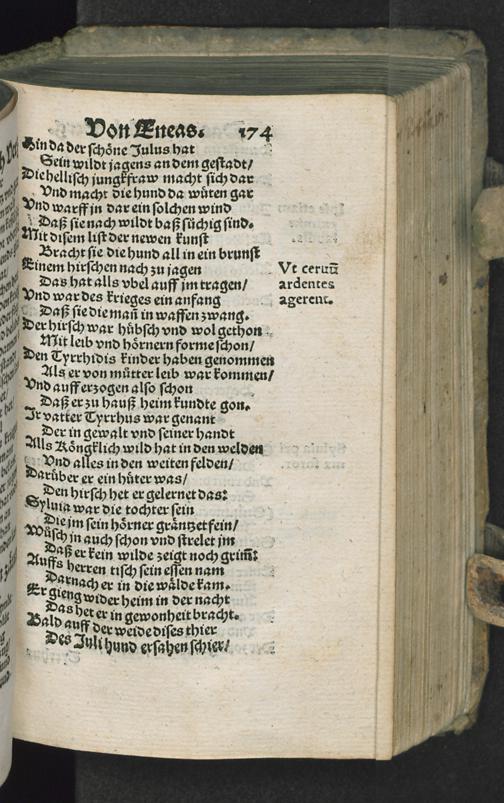 Von Æneas. 174
Hin da der schöne Julus hat
Sein wildt jagens an dem gestadt/
Die hellisch jungkfraw macht sich dar
Vnd macht die hund da wüten gar
Vnd warff in dar ein solchen wind
Daß sie nach wildt baß süchig sind.
Mit disem list der newen kunst
Bracht sie die hund all in ein brunst
Einem hirschen nach zu jagen
Das hat alls vbel auff jm tragen/
Vnd war des krieges ein anfang
Daß sie die mañ in waffen zwang.
Der hirsch war hübsch vnd wol gethon
Mit leib vnd hörnern forme schon/
Den Tyrrhidis kinder haben genommen
Als er von mütter leib war kommen/
Vnd aufferzogen also schon
Daß er zu hauß heim kundte gon.
Ir vatter Tyrrhus war genant
Der in gewalt vnd seiner handt
Alls Köngklich wild hat in den welden
Vnd alles in den weiten felden/
Darüber er ein hüter was/
Den hirsch het er gelernet das:
Sylvia war die tochter sein
Die jm sein hörner gräntzet fein/
Wüsch in auch schon vnd strelet jm
Daß er kein wilde zeigt noch grim̃:
Auffs herren tisch sein essen nam
Darnach er in die wälde kam.
Er gieng wider heim in der nacht
Das het er in gewonheit bracht.
Bald auff der weide dises thier
Des Juli hund ersahen schier/
Vt ceruũ
ardentes
agerent.